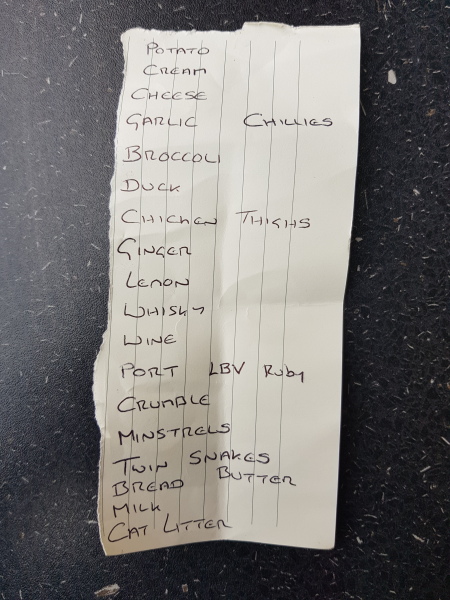 POTATO
CREAM
CHEESE
GARLIC CHILLIES
BROCCOLI
DUCK
CHICKEN THIGHS
GINGER
LEMON
WHISKY
WINE
PORT LBV Ruby
CRUMBLE
MINSTRELS
TWIN SNAKES
BREAD BUTTER
MILK
CAT LITTER